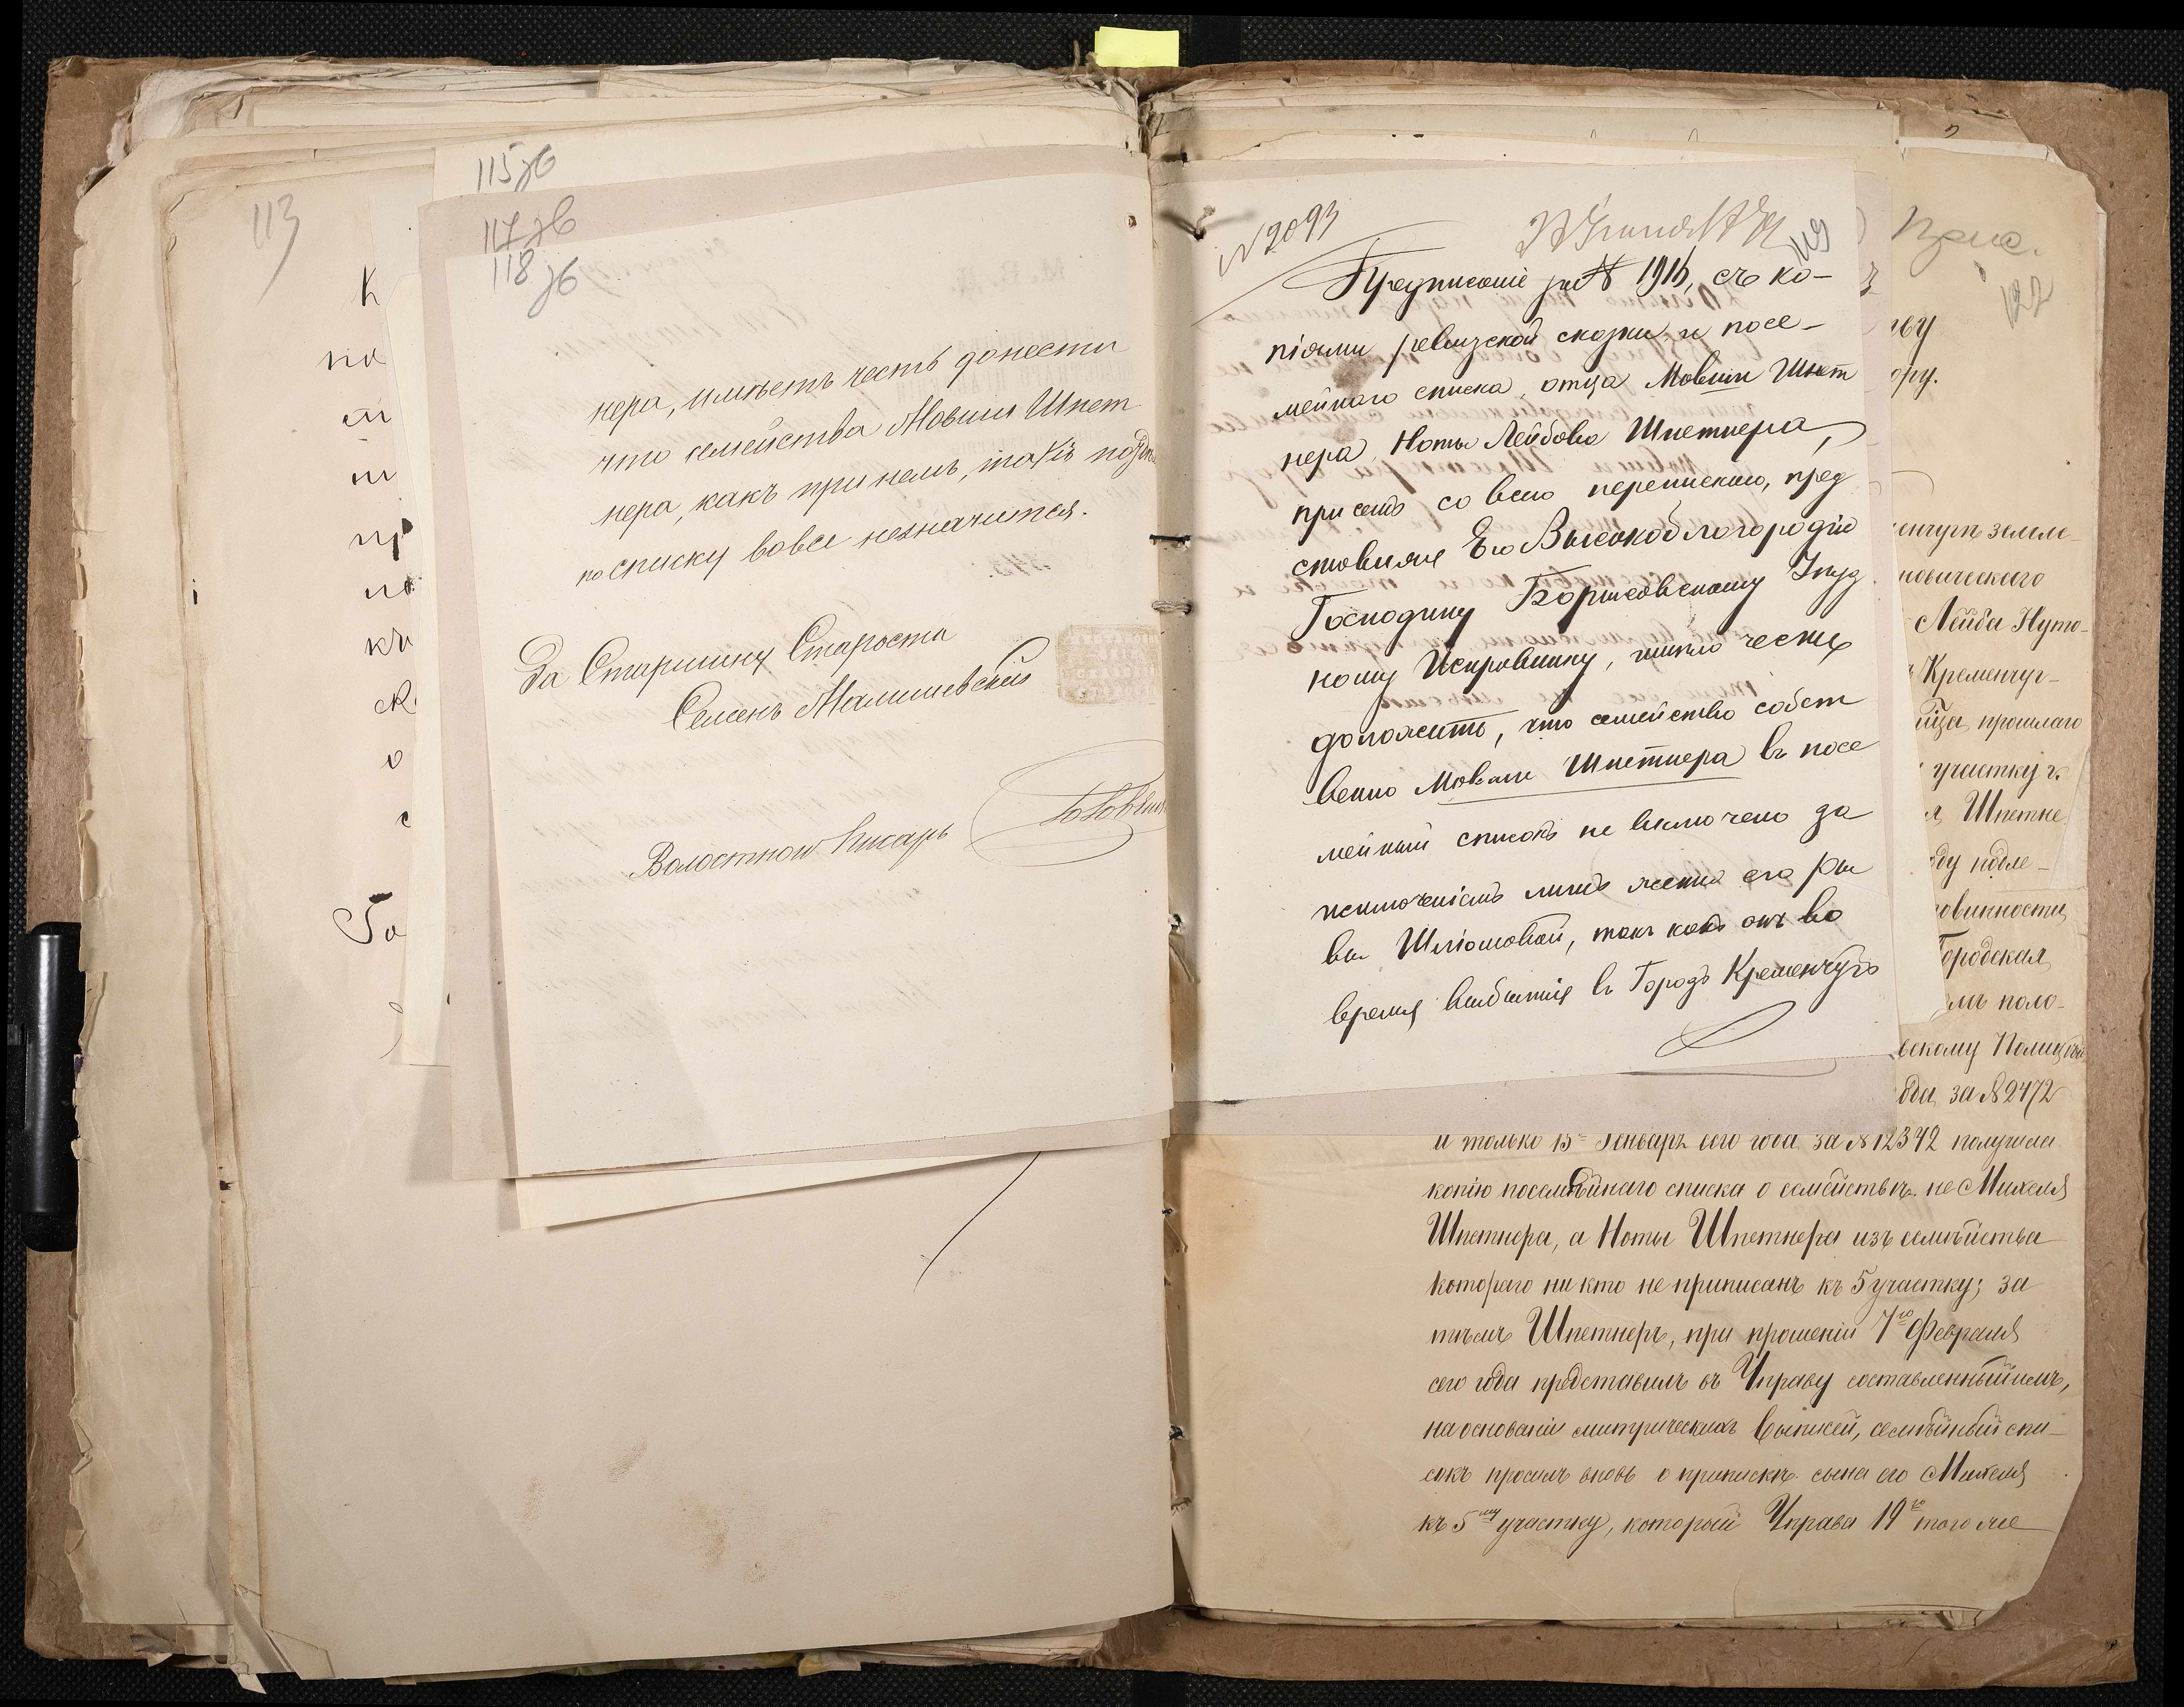 113
115 зв
117 зв
118 зв
нера, имѣетъ честь донести
что семейства Мовши Шпет
нера, какъ при немъ, такъ
по списку вовсе незначится.
За Старшину Староста
Семенъ Малишевскій
Волостной Писарь
№ 2093
119
Предписаніе за № 1916, съ ко-
піями ревизской сказки и посе-
мейнаго списка, отца Мовши Шпет
нера, Ноты Лейбова Шпетнера,
при семъ со всею перепискою, пред
ставляя Его Высокоблагородію
Господину Уѣзд
ному Исправнику, имѣю честь
доложить, что семейство собст
венно Мовши Шпетнера въ посе
мейный списокъ не включено за
исключеніемъ лишь жены его Ри
вы Шліомовой, такъ какъ онъ во
время выбытія въ Городъ Кременчугъ
122
Лейба Нуто-
Кременчуг-
прошлаго
участку г.
Шпетне
повинности
Городская
поло-
за № 2472
и только 15 Генваря сего года за № 12342 получила
копію посемѣйнаго списка о семѣйствѣ не Михеля
Шпетнера, а Ноты Шпетнера изъ семѣйства
котораго ни кто не приписанъ къ 5 участку; за
тѣмъ Шпетнеръ, при прошеніи 7го Февраля
сего года представилъ въ Управу составленный имъ,
на основаніи митрическихъ выписей, семѣйный спи-
сокъ просилъ вновь о припискѣ сына его Михеля
къ 5му участку, который Управа 19го того же